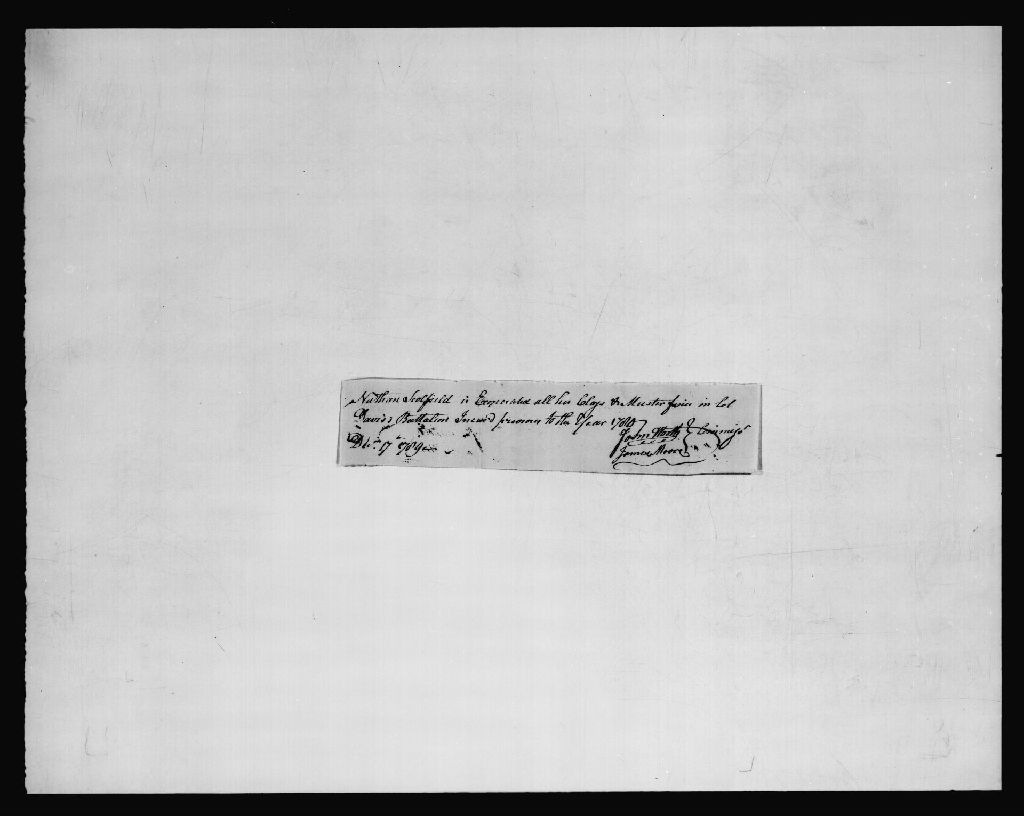 Nathan Scolfield is Exonerated all his Class & Muster fines in Col
Davis's Battalion Incur'd previous to the Year 1784
Dec.r 17th 1789 John North
James Moore Commiss.r